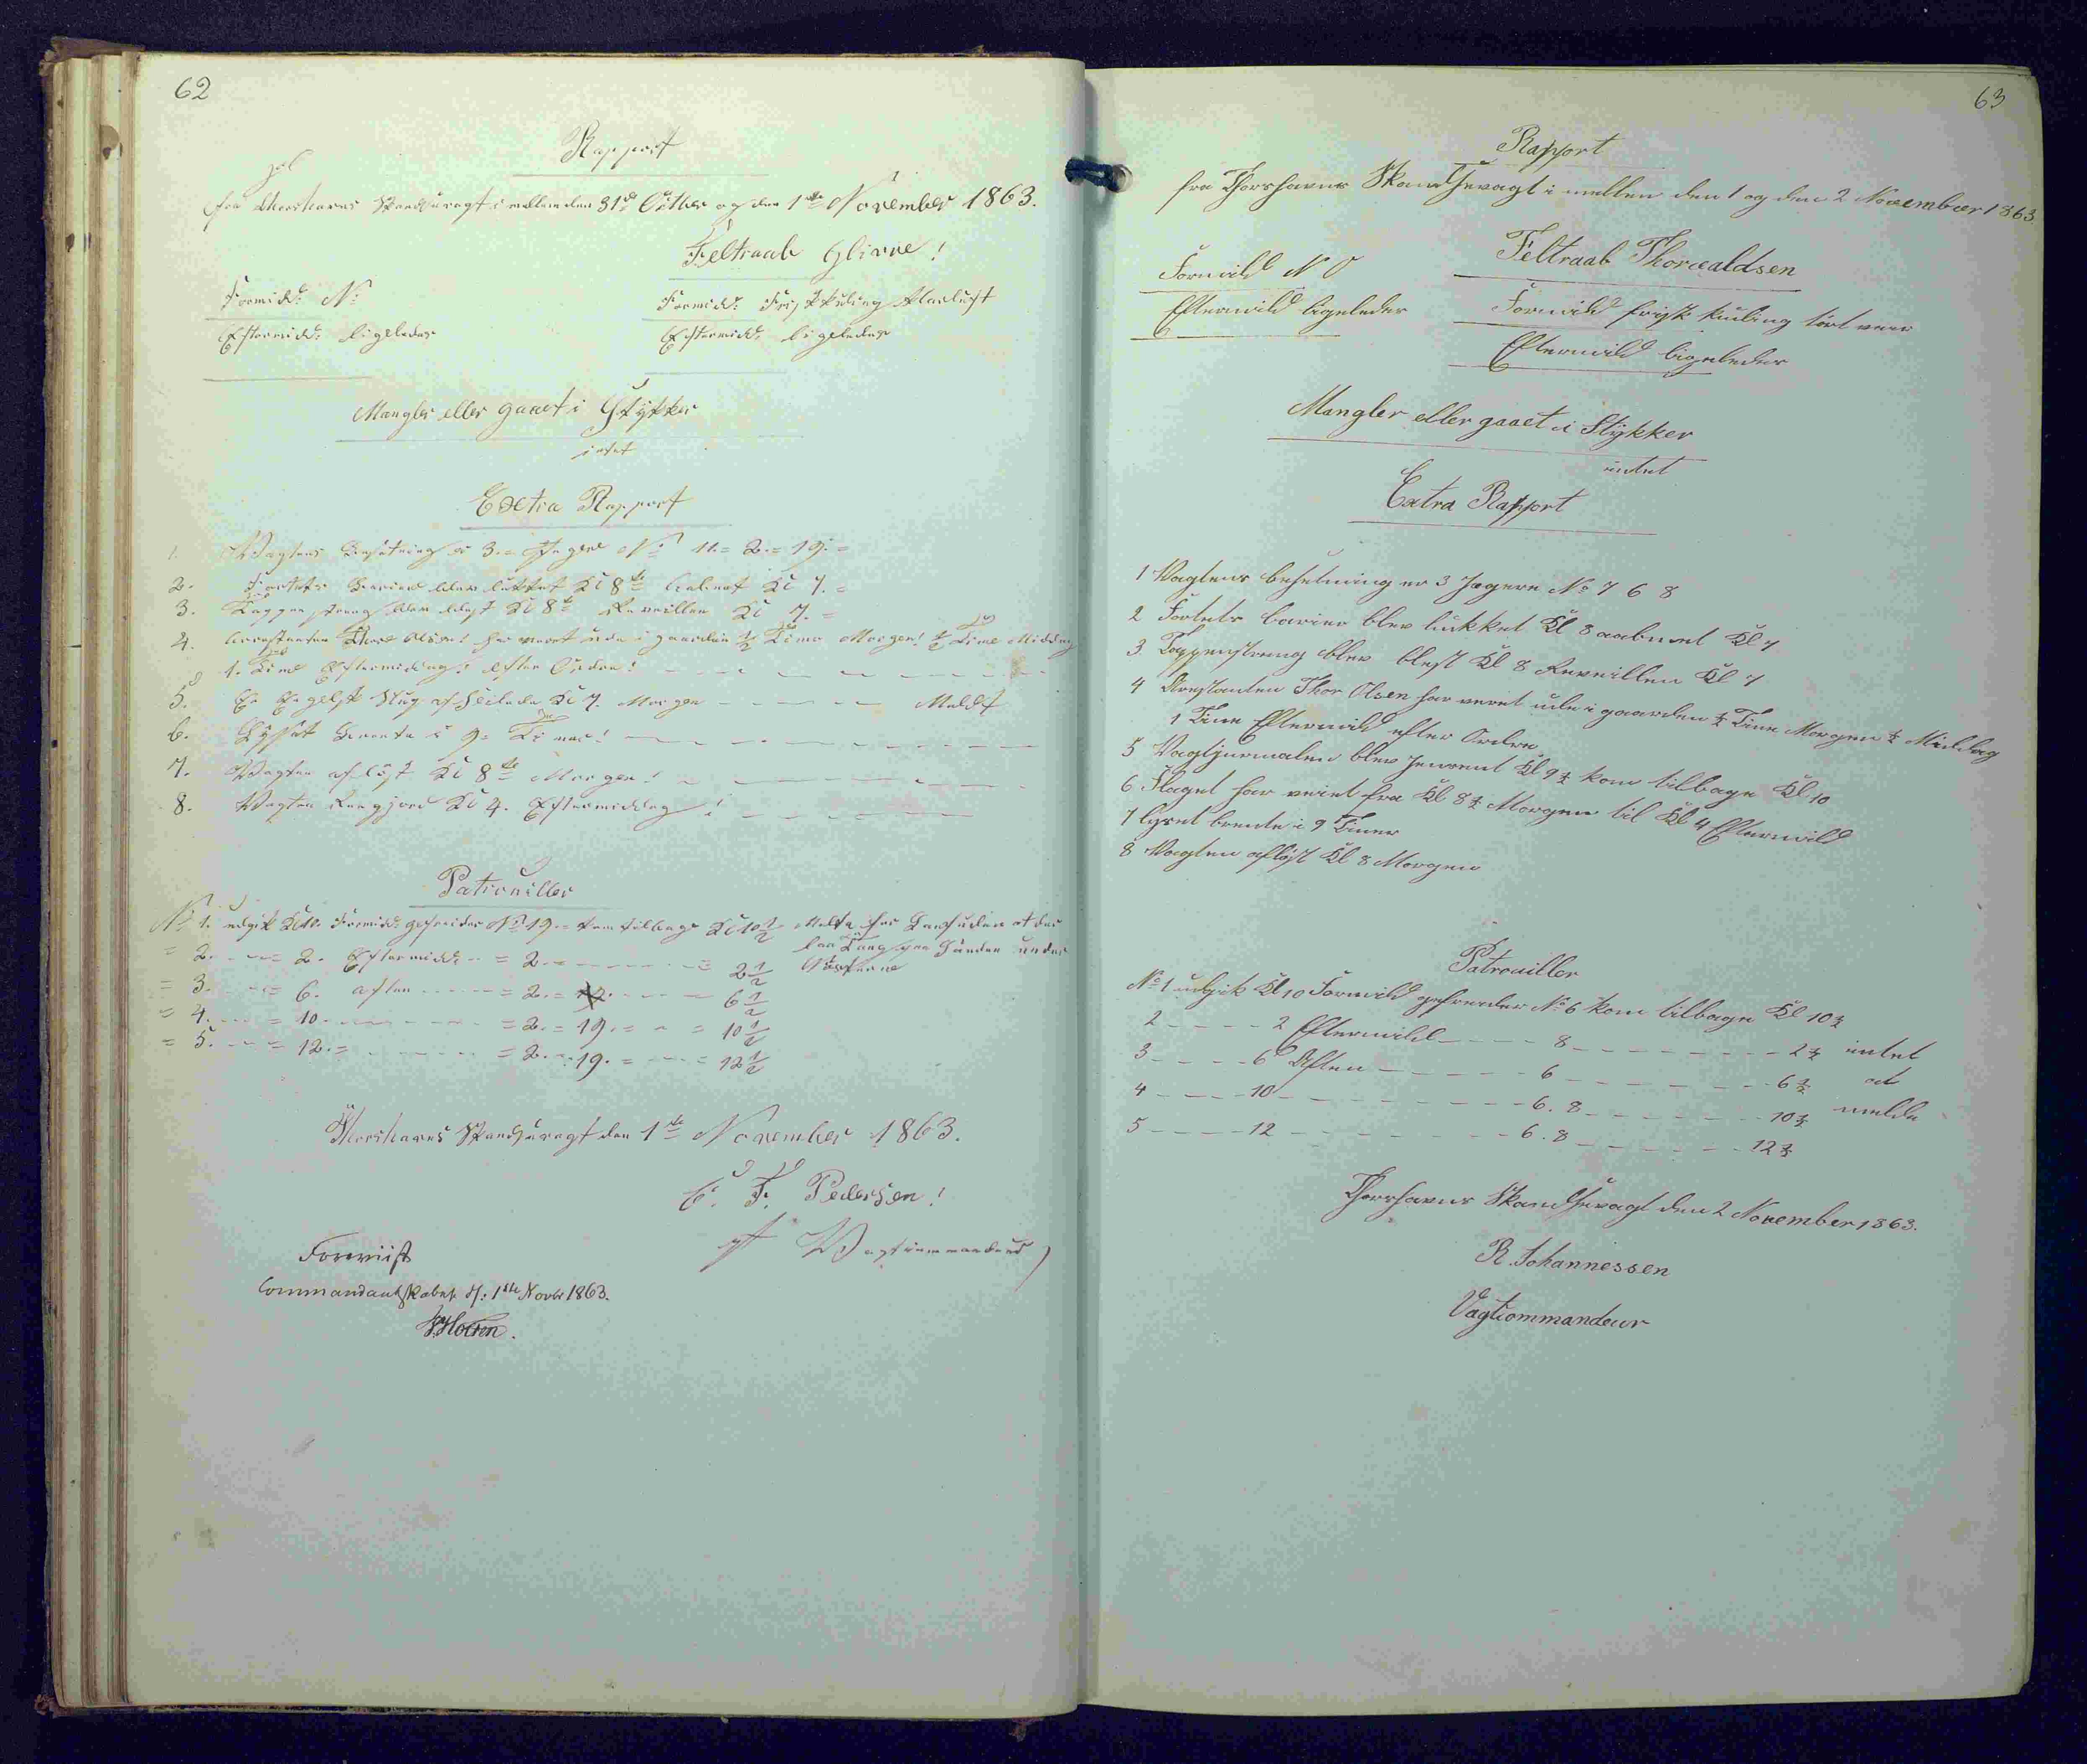 62
Rapport
fra Thorshavns Skandsevagt i mellem den 31te Octbr og den 1ste November 1863.
Feltraab
Formidd: N:
Formidd: Frisk Kuling Klarluft
Eftermidd: ligeledes
Eftermidd: ligeledes
Mangler eller gaaet i Stykker
intet
Extra Rapport
1. Vagtens Besætning er 3 = Jægere No 11. = 2. = 19. =
2. Fortets Barriere blev lukket Kl 8te aabnet Kl 7. =
3. Tappenstreng blev blæst Kl 8te Reveillen Kl 7. =
4. Arrestanten Thor Olsen har veret ude i gaarden ½ Time Morgen! ½ Time Middag
1. Time Eftermiddag! efter Ordre!
5. Kl 7. Morgen Meldt
6. Lyset brente i 9 = Timer!
7. Vagten aflöst Kl 8te Morgen!
8. Vagten Rengjord Kl 4. Eftermiddag!
Patrouiller
No 1. udgik Kl 10. Formidd: gefreider No 19. = kom tilbage Kl 10½ at der
= 2. = 2. Eftermidd = 2. = 2½ laa Tang paa under
= 3. = 6. aften = 2. = 6½
= 4. = 10. = 2. = 19. = 10½
= 5. = 12. = 2. = 19. = 12½
Thorshavns Skandsevagt den 1ste November 1863.
F. Pedersen!
Vagtcommandeur
Foreviist
Commandantskabet d: 1ste Novbr 1863.
63
Rapport
fra Thorshavns Skandsevagt i mellem den 1 og den 2 November 1863
Feltraab Thorvaldsen
Formidd N O
Formidd frisk kuling tört veir
Eftermidd ligeledes
Eftermidd ligeledes
Mangler eller gaaet i Stykker
intet
Extra Rapport
1 Vagtens besetning er 3 Jægere No 7 6 8
2 Fortets barier blev lukket Kl 8 aabnet Kl 7
3 Tappenstreng blev blest Kl 8 Reveillen Kl 7
4 Arestanten Thor Olsen har veret ude i gaarden ½ Time Morgen ½ Middag
1 Time Eftermidd efter Ordre
5 Vagtjurnalen blev Kl 9½ kom tilbage Kl 10
6 Flaget har veiet fra Kl 8½ Morgen til Kl 4 Eftermidd
7 lyset brente i 9 Timer
8 Vagten aflöst Kl 8 Morgen
Patrouiller
No 1 udgik Kl 10 Formidd gefreider No 6 kom tilbage Kl 10½
2 - - - - 2 Eftermidd - - - - 8 - - - - 2½ intet
3 - - - - 6 Aften - - - - 6 - - - - 6½ at
4 - - - - 10 - - - - 6. 8 - - - - 10½ melde
5 - - - - 12 - - - - 6. 8 - - - - 12½
Thorshavns Skandsevagt den 2 November 1863.
R. Johannessen
Vagtcommandeur